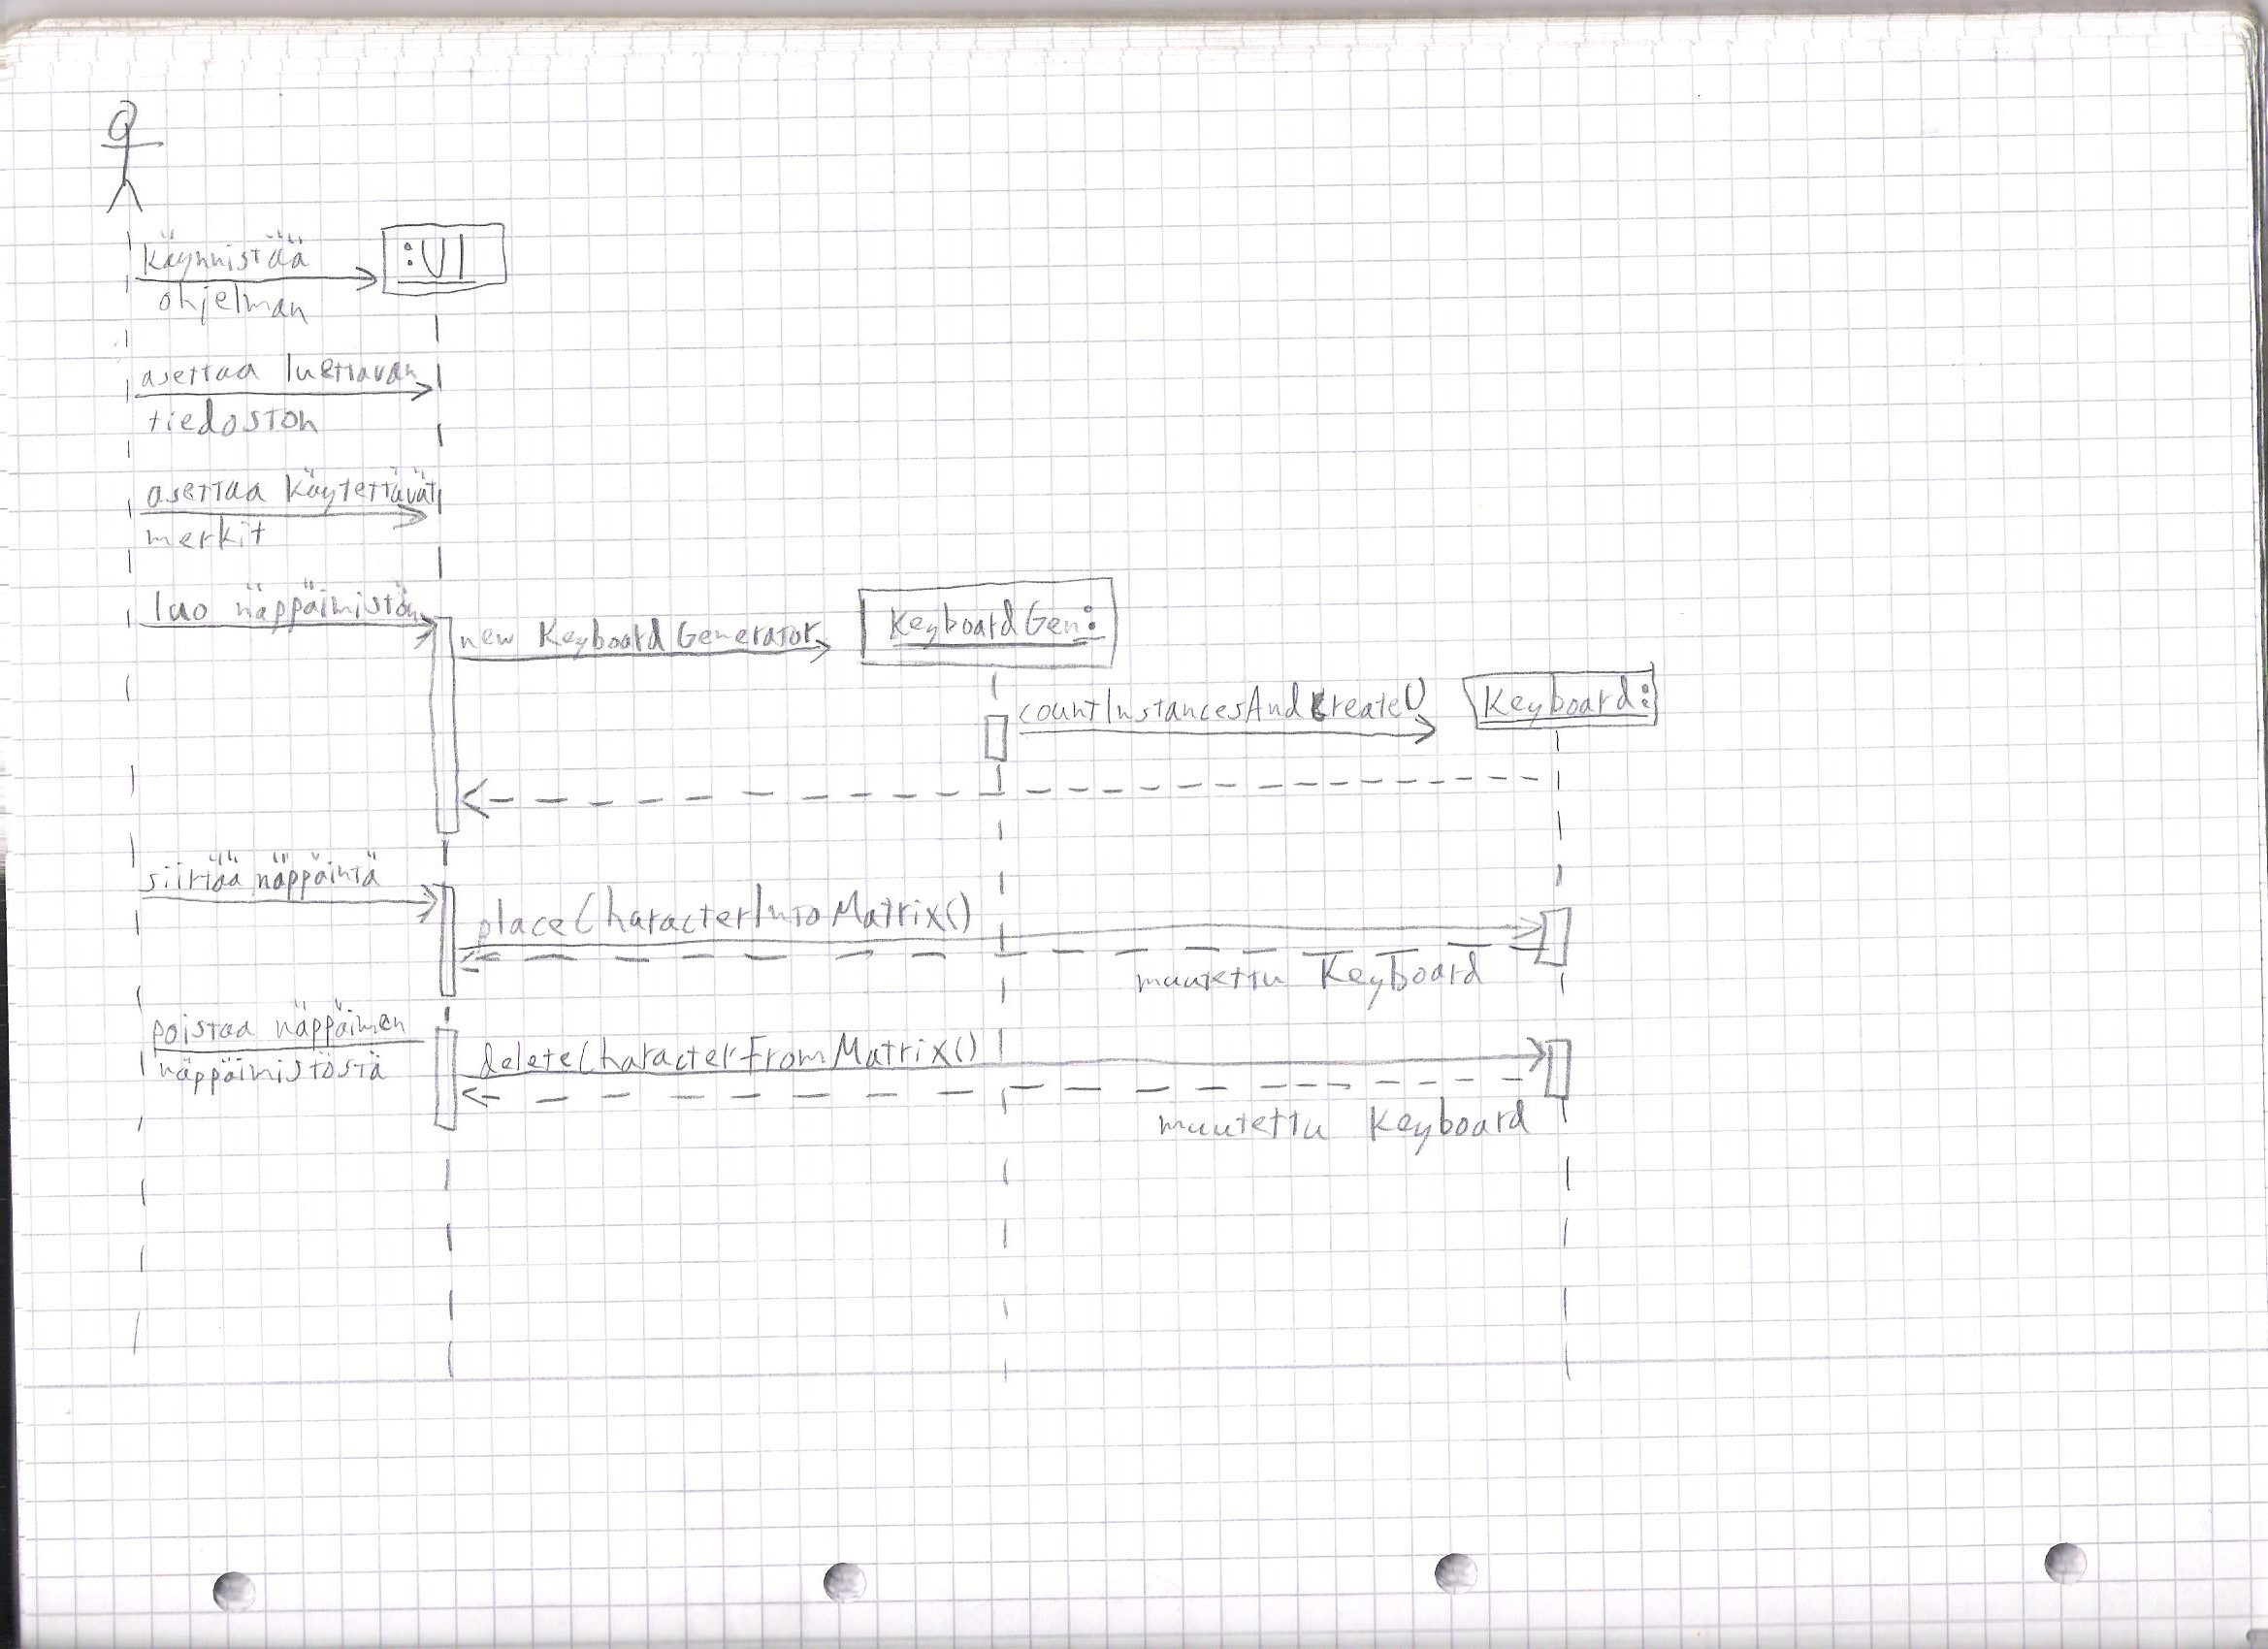 käynnistää
:UI
ohjelman
asettaa luettavan
tiedoston
asettaa käytettävät
merkit
luo näppäimistön
new KeyboardGenerator
KeyboardGen:
countInstancesAndCreate()
Keyboard:
siirtää näppäintä
placeCharacterIntoMatrix()
muutettu Keyboard
poistaa näppäimen
näppäimistöstä
deleteCharacterFromMatrix()
muutettu Keyboard